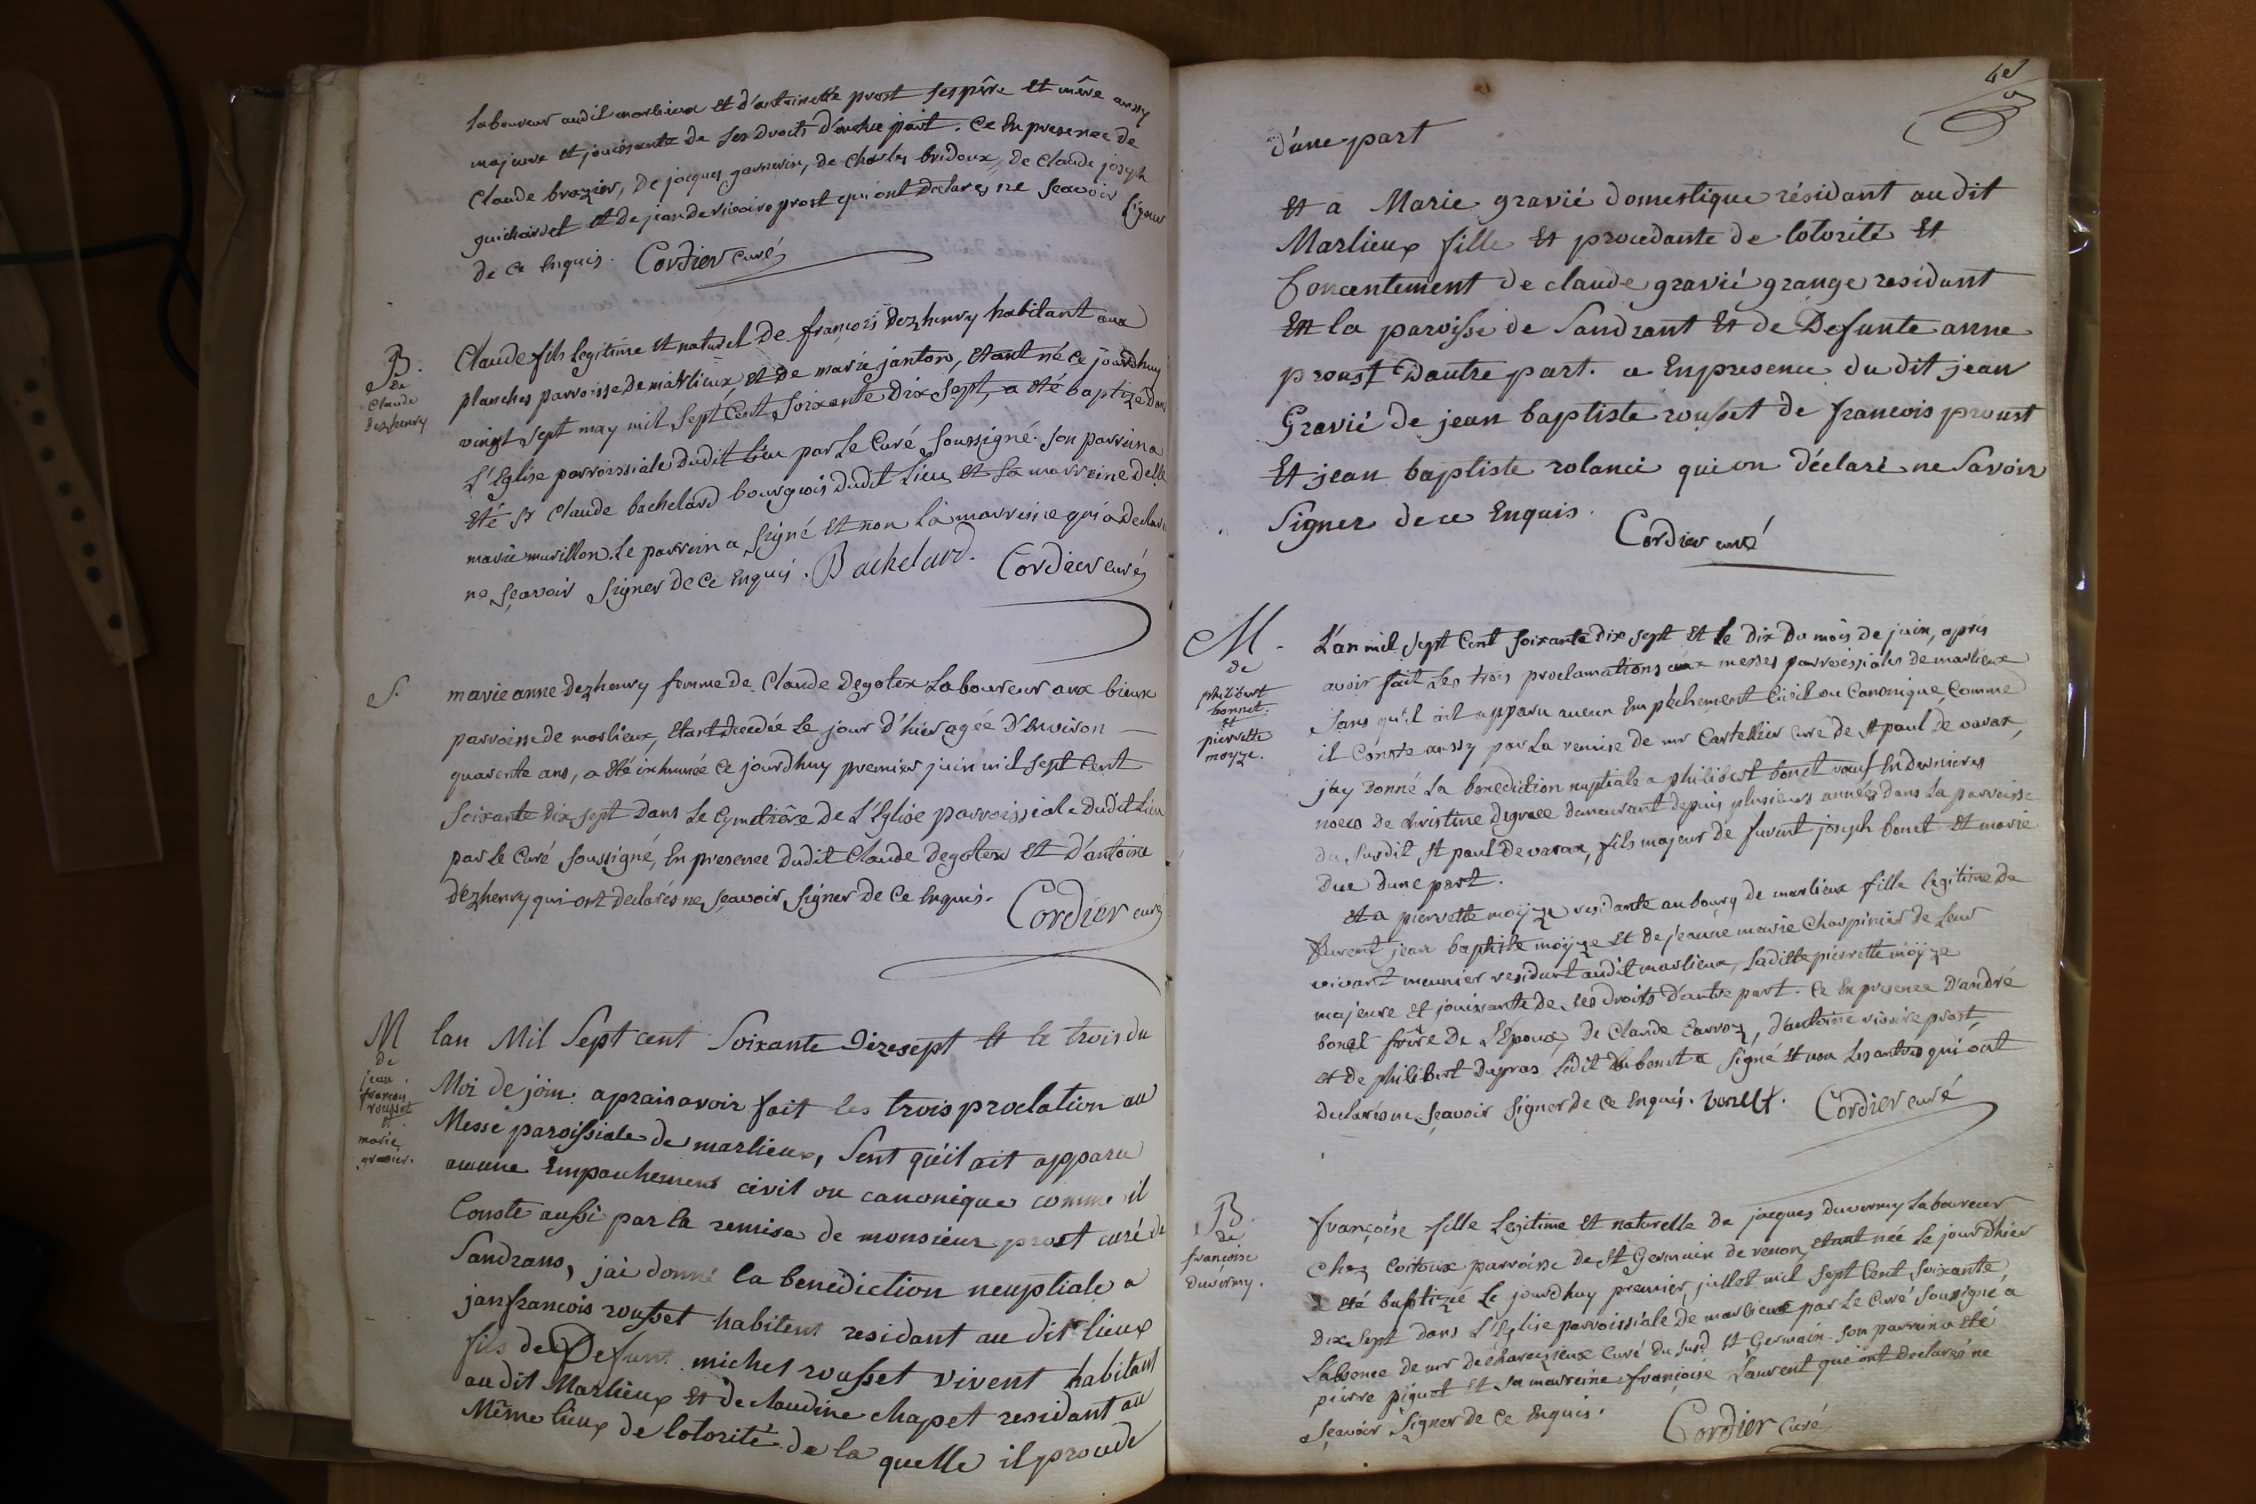 laboureur audit marlieux et d'antoinette prost ses père et mère aussy
majeure et jouissante de ses droits d'autre part. Ce En presence de
Claude brazier, de jacques garnerin, de Charles bridoux, de Claude joseph
guichardet et de jean de rivoire prost qui ont declarés ne sçavoir signer
de ce enquis. Cordier curé
B.
de
Claude
dezhenry
Claude fils legitime et naturel de françois dezhenry habitant aux
planches parroisse de marlieux, et de marie janton, etant né ce jourdhuy
vingt sept may mil sept Cent soixante dix sept, a été baptizé dans
L'Eglise parroissiale dudit lieu par le Curé soussigné. son parrein a
été sr Claude bachelard bourgeois dudit Lieu et sa marreine delle
marie murillon. Le parrein a signé et non la marreine qui a declaré
ne sçavoir signer de ce enquis. Bachelard. Cordier curé
S.
marie anne dezhenry femme de Claude degotex Laboureur aux bieux
parroisse de marlieux, etant decedée le jour d'hier agée d'Environ
quarente ans, a été inhumée ce jourdhuy premier juin mil sept cent
soixante dix sept dans le Cymetière de L'Eglise parroissiale dudit Lieu
par le Curé soussigné, En presence dudit Claude degotex et d'antoine
dezhenry qui ont declarés ne sçavoir signer de ce enquis. Cordier curé
M
de
jean
francois
rousset
et
marie
gravier.
lan Mil Sept cent Soixante Dizesept Et le trois du
Moi de join. apraisavoir fait les trois proclation au
Messe paroissiale de marlieux, Sent qu'il ait apparu
aucune Empauchement civil ou canonique comme il
Conste aussi par la remise de monsieur prost curé de
Sandrans, jai donné la benediction neuptiale a
janfrancois rousset habitent residant au dit lieux
fils de Defunt michel rousset vivent habitant
au dit Marlieux Et de claudine chapet residant au
Même lieux de lotorité de la quelle il procede
d'une part
Et a Marie gravié domestique résidant audit
Marlieux fille Et procedante de lotorité Et
Concentement de claude gravié grange residant
En la paroisse de Sandrant Et de Defunte anne
proust Dautre part. a Enpresence du dit jean
Gravié de jean baptiste rousset de francois proust
Et jean baptiste rolanci qui on déclaré ne Savoir
Signer de ce Enquis.
Cordier curé
M.
de
philibert
bonnet
et
pierrette
moyze.
L'an mil sept Cent soixante dix sept et le dix du mois de juin, après
avoir fait Les trois proclamations aux messes parroissiales de marlieux
sans qu'il ait apparu aucun Empêchement Civil ou Canonique, Comme
il Conste aussy par La remise de mr Cartellier curé de st paul de varax,
j'ay donné La benediction nuptiale a philibert bonet veuf En dernieres
noces de christine degrace demeurant depuis plusieurs années dans La parroisse
du susdit st paul de varax, fils majeur de furent joseph bonet et marie
due d'une part.
et a pierrette moÿze residante au bourg de marlieux fille legitime de
furent jean baptiste moÿze et de jeanne marie Charpinier de Leur
vivant meunier residant audit marlieux, Laditte pierrette moÿze
majeure et jouissante de ses droits d'autre part. Ce En presence D'andré
bonet frère de L'Epoux, de Claude Carroz, d'antoine rivoire prost,
et de philibert dupras Ledit bonet a signé et non Les autres qui ont
declarés ne sçavoir signer de ce enquis. bonet. Cordier curé
B.
de
françoise
duverny.
françoise fille Legitime et naturelle de jacques duverny Laboureur
chez Coitoux parroisse de st Germain de renon, etant née Le jour d'hier
a été baptizé Le jourdhuy premier juillet mil sept Cent soixante
dix sept dans L'Eglise parroissiale de marlieux par Le Curé soussigné a
L'absence de mr de Curé du susd st Germain. son parrein a été
pierre piquet et sa marreine françoise Laurent qui ont declarés ne
sçavoir signer de ce enquis. Cordier Curé